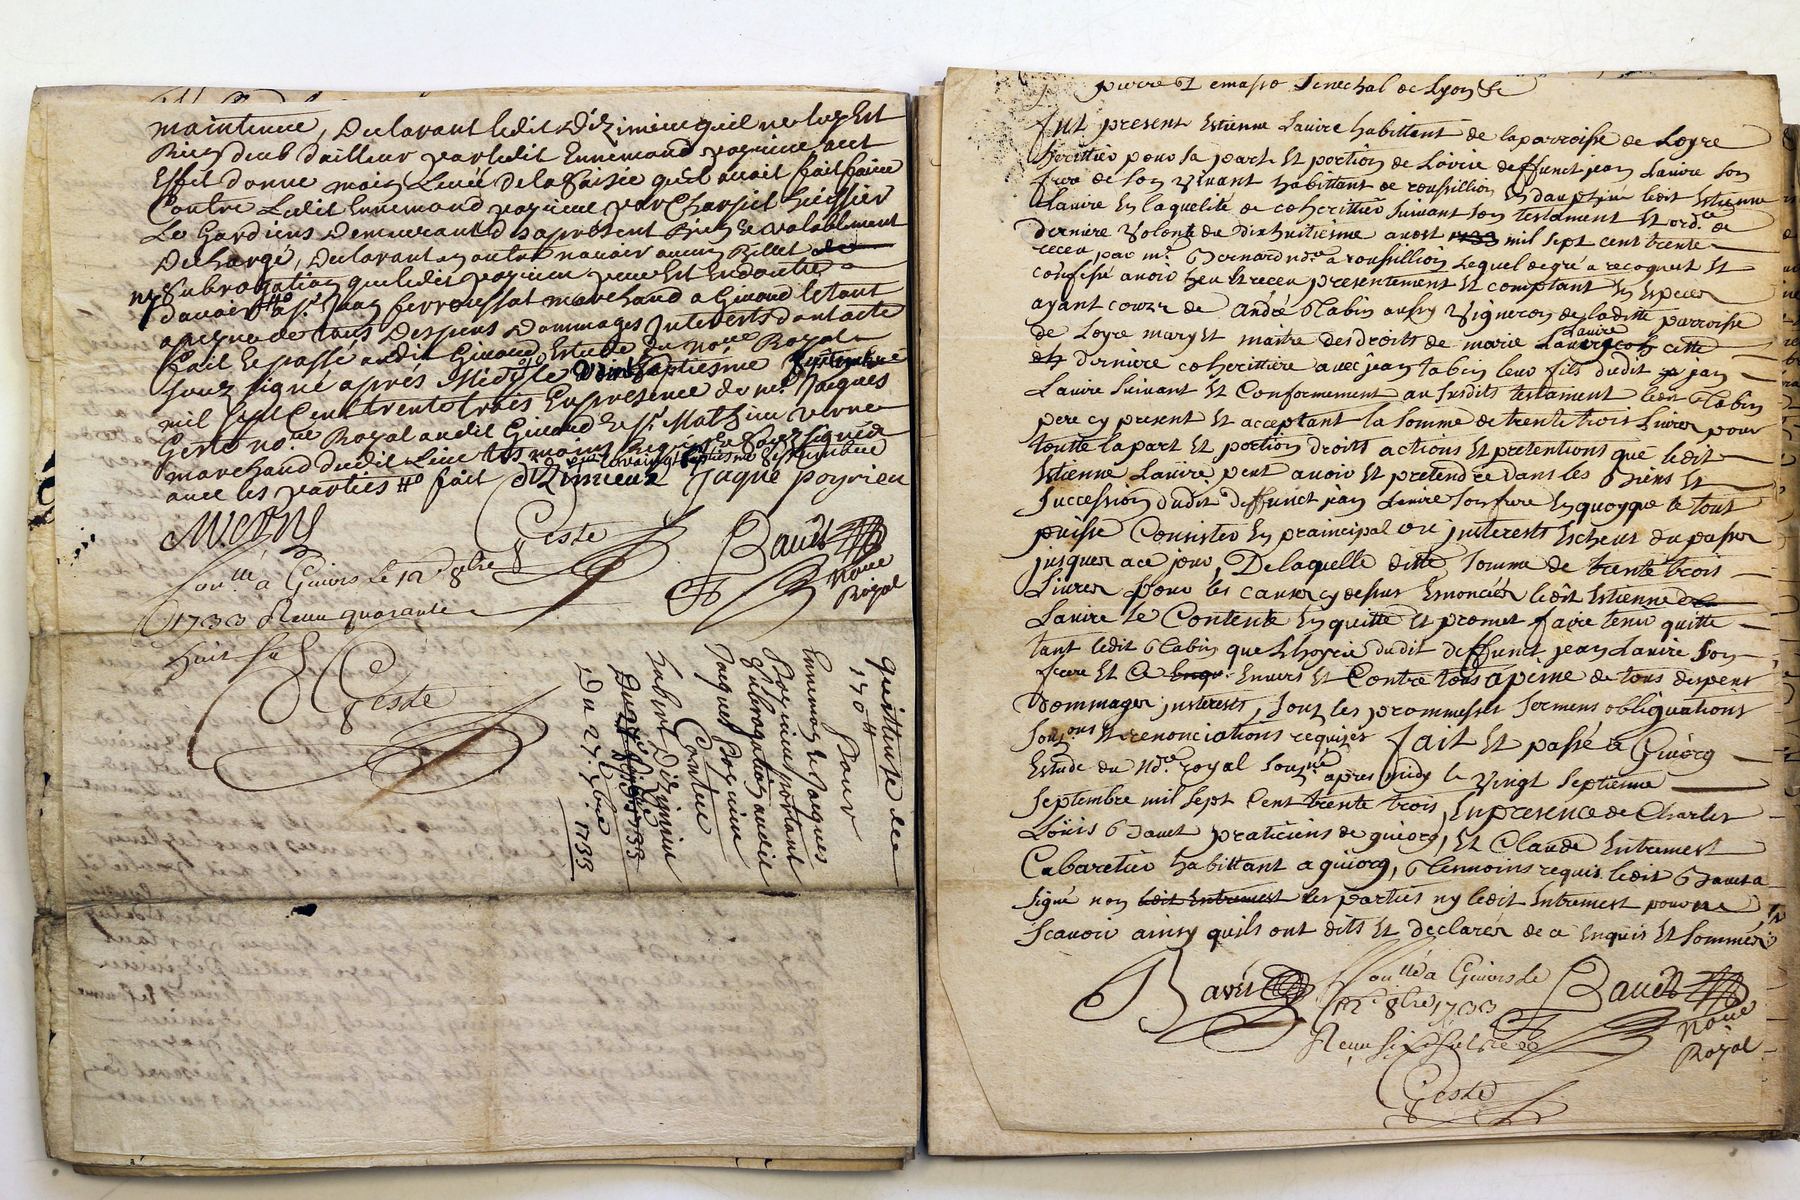 maintenue, Declarant ledit Dizimieu quil ne luy Est
Rien deub d'ailleur par ledit Ennemond poyzieu, avec
Effet donne main Levée de la Saisie quil avoit fait faire
Contre Ledit Ennemond poyzieu par Charpit huissier
Le Gardiens Demeurant Des apresent Bien & valablement
Dechargé, Declarant en outre navoir aucun Billet
ny Subrogation que ledit poyzieu pere Est En doutte
davoir a sr. Jean ferroussat marchand a Givord le tout
a peyne de tous Despens Dommages Interests dont acte
fait & passé audit Givord Estude du Nore Royal
Souzsigné aprés Midy le Vingt septiesme Septembre
mil sept Cent trente trois En presence de me. Jacques
Geste nore Royal audit Givord & sr. Mathieu verne
marchand dudit Lieu tesmoins Requis Souzsignés
avec les parties fait Dizimieux Jaque poyzieu
M. Verne Geste Baudt
Conlle a Givors le 12 8bre
1733 Receu quarante
huit s
Geste
nore
Royal
quittance de
170 tt
Pour
Ennemond & Jacques
Poyzieu portant
Subrogation audit
Jacques Poyzieu
Contre
hubert Dizimieu
Du 27. 7bre 1733
pierre et emasse Senechal de Lyon &c
fut present Estienne Lavire habittant de la parroisse de Loyre
herittier pour sa part Et portion de Loirie deffunct jean Lavire son
frere de son Vivant habittant de roussillion En dauphiné ledit Estienne
Lavire En la quelité de coherittier suivant son testament Et ord.ce de
derniere Volonté du dixhuitiesme aoust 1733 mil sept cent trente
receu par me. Bernard nore a roussillion Lequel de gré a recognut Et
confessé avoir heu Et receu presentement Et comptant En Especes
ayant cours de André Tabin aussy Vigneron de laditte parroisse
de Loyre mary Et maitre des droits de marie Lavire cette
derniere coherittiere avec jean tabin leur fils dudit jean
Lavire suivant Et Conformement au susdits testament ledit Tabin
pere cy present Et acceptant la somme de trente trois Livres pour
toutte la part Et portion droits actions Et pretentions que ledit
Estienne Lavire peut avoir Et pretendre dans les Biens Et
Succession dudit deffunct jean Lavire son frere En quoyque le tout
puisse Consister En prainicipal ou justerests Escheus du passé
jusques a ce jour, De laquelle ditte somme de trente trois
Livres pour les causes cy dessus Ennoncées ledit Estienne
Lavire se Contente En quitte Et promet faire tenir quitte
tant ledit Tabin que Lhoyrie dudit deffunct jean Lavire son
frere Et Ce Envers Et Contre tous a peine de tous despens
Dommages justerests, souz les prommesses sermens obliguations
souzons Et renonciations requises fait Et passé a Givorg
Estude du Nore royal souzné apres midy le Vingt Septieme
Septembre mil sept Cent trente trois, En presence de Charles
Loüis Bauet praticiens de guiorg, Et Claude Entremest
Cabaretier habittant a guiorg, Temoins requis ledit Bauet a
signé non ledit Entremest les parties ny ledit Entremest pour ne
Scavoir ainsy quils ont dits Et declarés de ce Enquis Et sommés
Bavet Conlle a Givors le Baudt
12e 8bre 1733
Receu six
nore
Royal
Geste